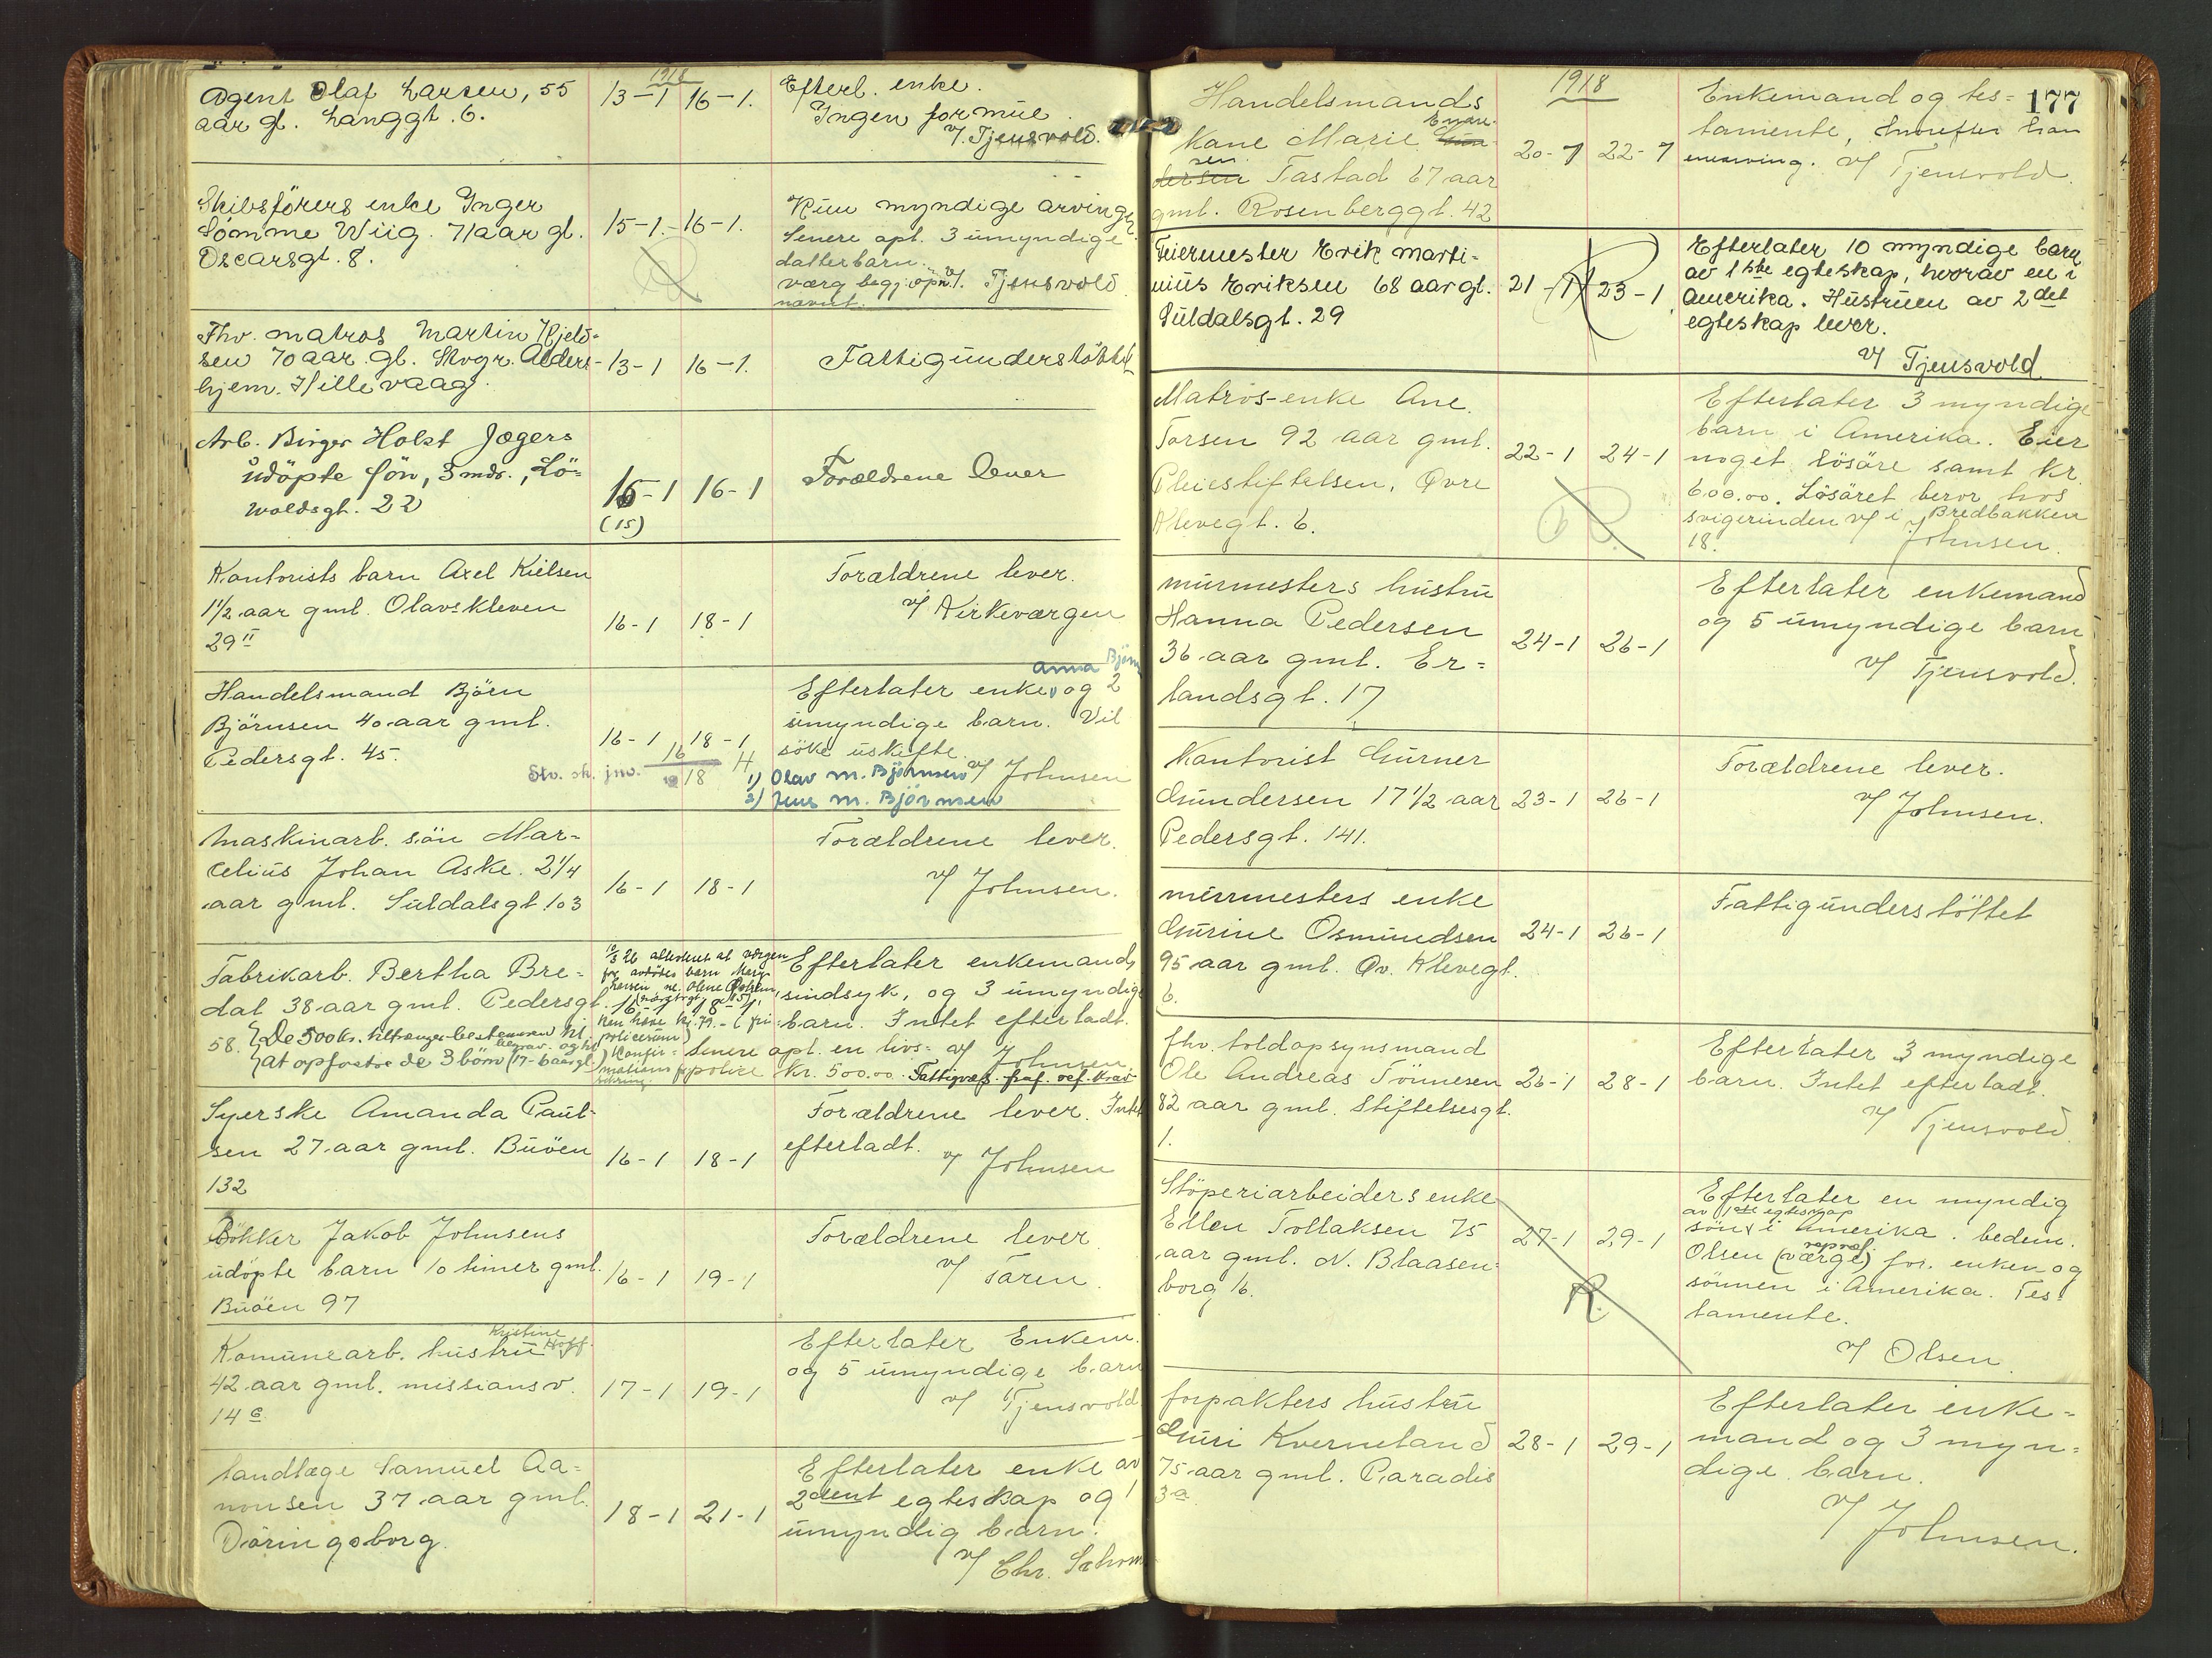 1918
Agent Olaf Larsen, 55
aar gl. Langgt. 6.
13-1 16-1.
Efterl. enke.
Ingen formue.
v/ Tjensvold.
Skibsförers enke Inger
Sömme Wiig. 71 aar gl.
Oscarsgt. 8.
15-1. 16-1.
Kun myndige arvinger
Senere opl. 3 umyndige
datterbarn.
værg begj. opn. v/. Tjensvold
nævnt.
Fhv. matros Martin Kjeld-
sen 70 aar gl. Stvgr. Alders-
hjem. Hillevaag.
13-1 16-1.
Fattigunderstöttet
Arb. Birger Holst Jægers
udöpte sön, 3 mdr., Lö-
voldsgt. 22
16-1 16-1
(15)
Forældrene lever
Kontorists barn Axel Kielsen
1 1/2 aar gml. Olavskleven
29 II
16-1 18-1
Forældrene lever.
v/ Kirkeværgen
Handelsmand Björn
Björnsen 40 aar gml.
Pedersgt. 45.
16-1 18-1
Stv. sk. jnr. 16/18 H
Anna Björns
Efterlater enke og 2
umyndige barn. Vil
söke uskifte.
v/ Johnsen
1) Olav M. Björnsen
2) Jens M. Björnsen
Maskinarb. sön Mar-
celius Johan Aske. 2 1/4
aar gml. Suldalsgt. 103
16-1 18-1
Forældrene lever.
v/ Johnsen.
Fabrikarb. Bertha Bre-
dal 38 aar gml. Pedersgt.
58. De 500 kr. tiltrænges bestemmen til
begrav. og til
at opfostre de 3 börn (17-6 aar gl.)
16-1 18-1
Efterlater enkemand,
sindsyk, og 3 umyndige
barn. Intet efterladt.
v/ Johnsen.
Senere opl. en livs-
police kr. 500.00. Fattigvæs. fraf. ref. krav
Syerske Amanda Paul-
sen 27 aar gml. Buöen
132
16-1 18-1
Forældrene lever. Intet
efterladt.
v/ Johnsen
Bökker Jakob Johnsens
udöpte barn 10 timer gml.
Buöen 97
16-1 19-1
Forældrene lever
v/ Taren.
Komunearb. hustru Kristine Hoff.
42 aar gml. missionsv.
14 c
17-1 19-1
Efterlater Enkem.
og 5 umyndige barn
v/ Tjensvold
Tandlæge Samuel Aa-
nonsen 37 aar gml.
Döringsborg.
18-1 21-1
Efterlater enke av
2dent egteskap og 1
umyndig barn.
v/ Chr. Sæhom
177
1918
Handelsmands
Kone Marie Enare-
sen Tastad 67 aar
gml. Rosenberggt. 42
20-1 22-1
Enkemand og tes-
tamente, hvorefter han
enearving. v/ Tjensvold.
Feiermester Erik Marti-
nius Eriksen 68 aar gl.
Suldalsgt. 29
21-1 23-1
Efterlater 10 myndige barn
av 1ste egteskap, hvorav en i
Amerika. Hustruen av 2det
egteskap lever.
v/ Tjensvold
Matros-enke Ane
Torsen 92 aar gml.
Pleiestiftelsen, Øvre
Klevegt. 6.
22-1 24-1
Efterlater 3 myndige
barn i Amerika. Eier
noget lösöre samt kr.
600.00. Lösöret beror hos
svigerinden v/ i Bredbakken
18.
Johnsen.
Murmesters hustru
Hanna Pedersen
36 aar gml. Er-
landsgt. 17
24-1 26-1
Efterlater enkemand
og 5 umyndige barn
v/ Tjensvold.
Kontorist Gurner
Gundersen 17 1/2 aar
Pedersgt. 141.
23-1 26-1
Forældrene lever.
v/ Johnsen.
Murmesters enke
Gurine Osmundsen
95 aar gml. Øv. Klevegt.
6.
24-1 26-1
Fattigunderstöttet
fhv. toldopsynsmand
Ole Andreas Tönnesen
82 aar gml. Stiftelsesgt.
1.
26-1 28-1
Efterlater 3 myndige
barn. Intet efterladt.
v/ Tjensvold.
Stöperiarbeiders enke
Ellen Tollaksen 75
aar gml. N. Blaasen-
borg 16.
27-1 29-1
R.
Efterlater en myndig
av 1ste egteskap
sön i Amerika. bedem.
Olsen (værge) repræs. for. enken og
sönnen i Amerika. Tes-
tamente.
v/ Olsen
forpakters hustru
Guri Kverneland
75 aar gml. Paradis
3a
28-1 29-1
Efterlater enke-
mand og 3 myn-
dige barn.
v/ Johnsen.